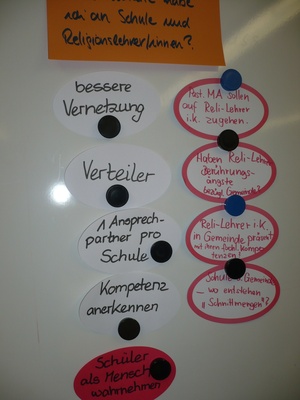 habe
an Schule und
Religionslehrer/innen?
bessere
Vernetzung
Verteiler
1 Ansprech-
partner pro
Schule
Kompetenz
anerkennen
Schüler
als Mensch
wahrnehmen
Past. MA sollen
auf Reli-Lehrer
i.k. zugehen.
Haben Reli-Lehrer
Berührungs-
ängste
bezügl. Gemeinde?
Reli-Lehrer i.K.
in Gemeinde präsent
mit ihren
Gemeinde
– wo entstehen
"Schnittmengen"?